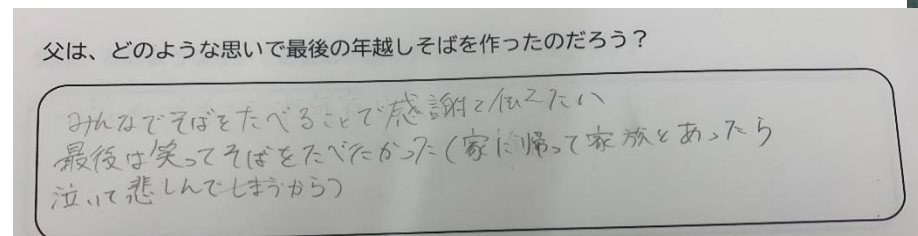 父は、どのような思いで最後の年越しそばを作ったのだろう？
みんなでそばをたべることで感謝を伝えたい
最後は笑ってそばをたべたかった(家に帰って家族とあったら
泣いて悲しんでしまうから)